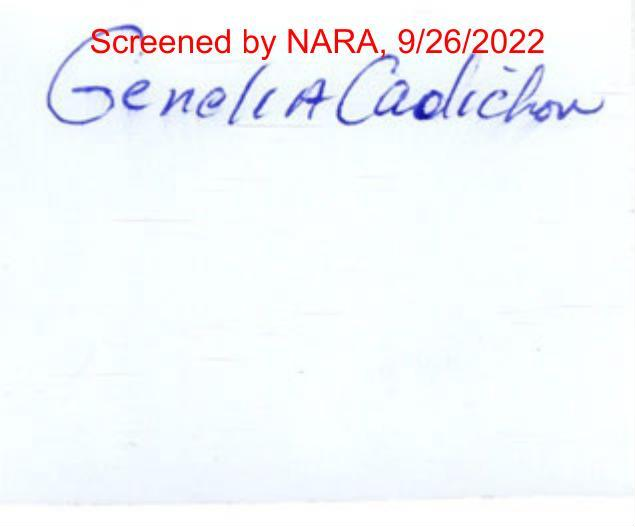 Screened by NARA, 9/26/2022
Genelia Cadichon